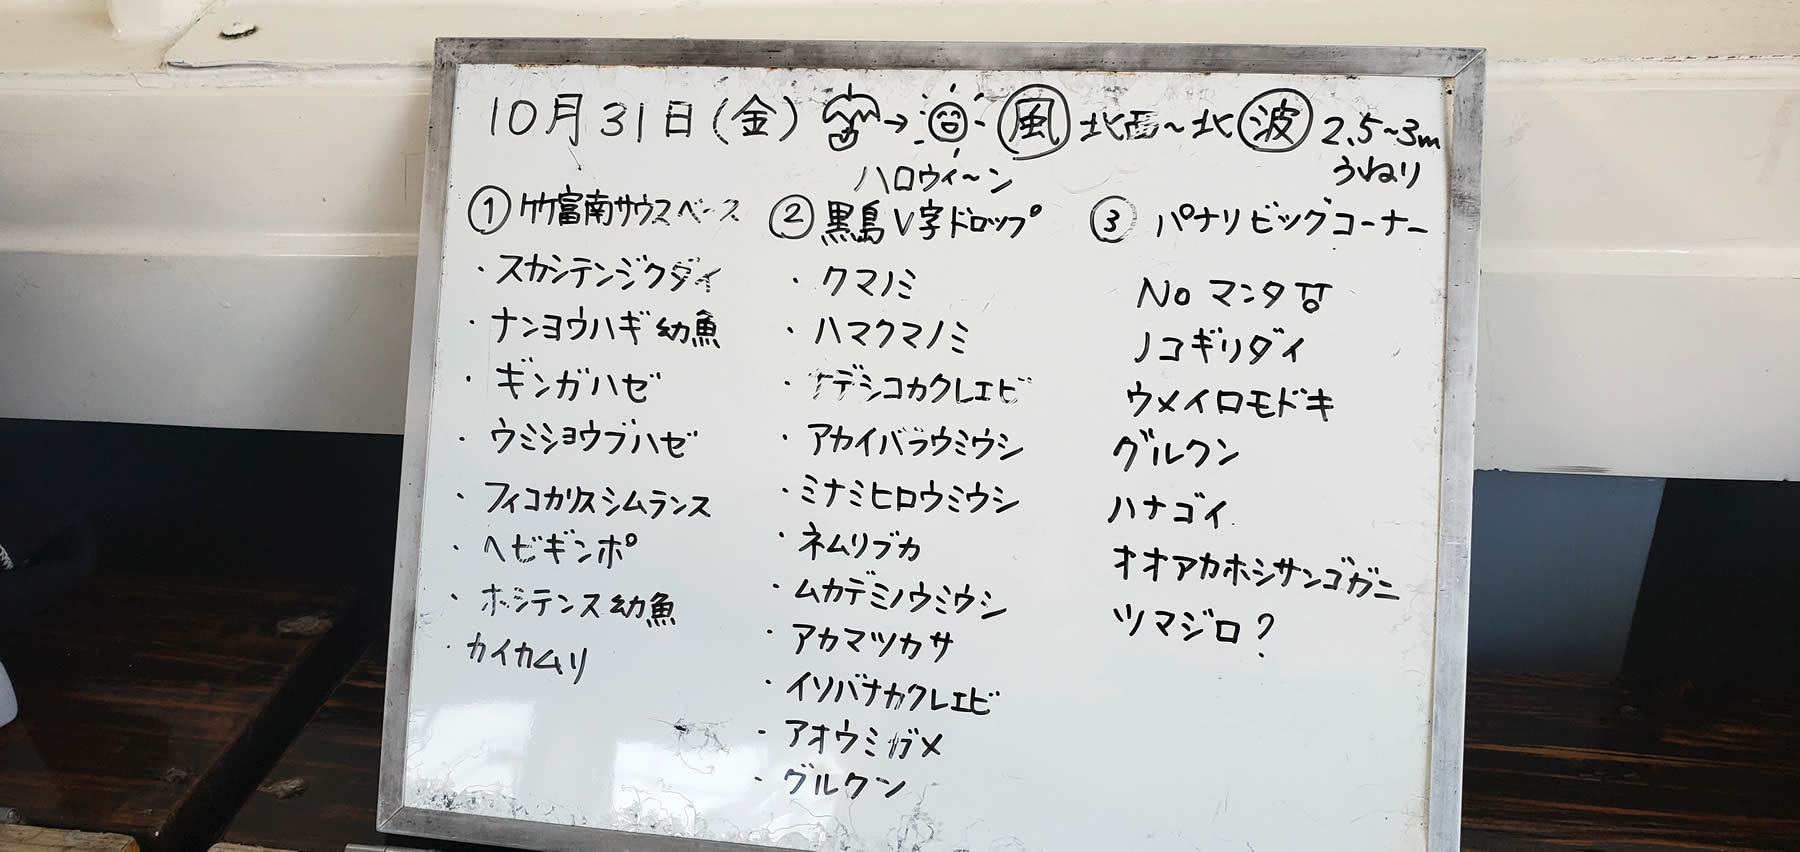 10月31日(金) → 風 北西~北 波 2.5~3m
うねり
ハロウィ~ン
① 竹富南サウスベース
・スカシテンジクダイ
・ナンヨウハギ幼魚
・ギンガハゼ
・ウミショウブハゼ
・フィコカリスシムランス
・ヘビギンポ
・ホシテンス幼魚
・カイカムリ
② 黒島V字ドロップ
・クマノミ
・ハマクマノミ
・ナデシコカクレエビ
・アカイバラウミウシ
・ミナミヒロウミウシ
・ネムリブカ
・ムカデミノウミウシ
・アカマツカサ
・イソバナカクレエビ
・アオウミガメ
・グルクン
③ パナリビッグコーナー
No マンタ
ノコギリダイ
ウメイロモドキ
グルクン
ハナゴイ
オオアカホシサンゴガニ
ツマジロ?